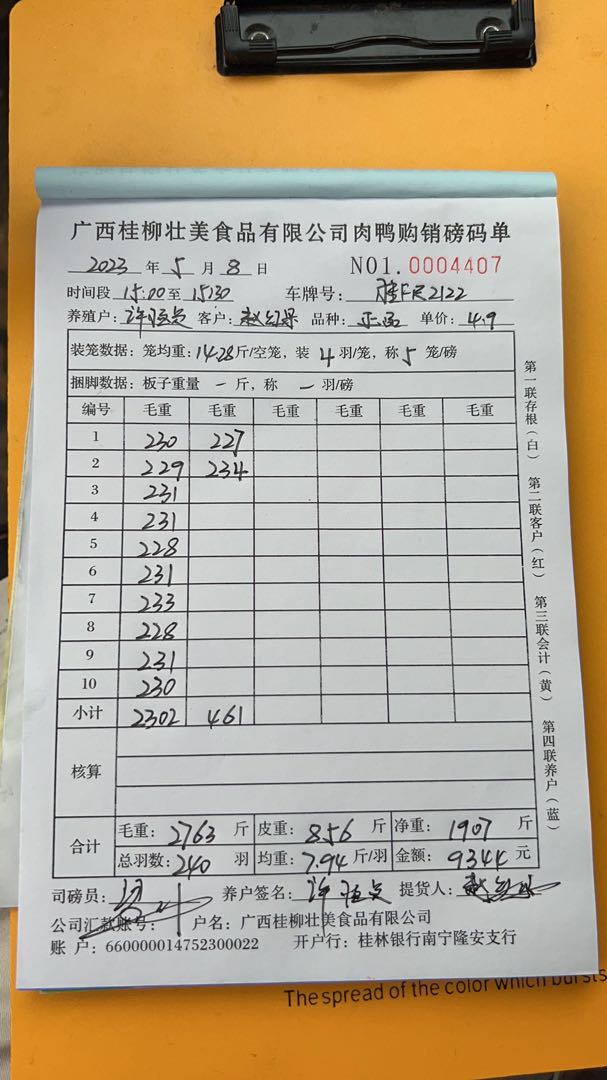 广西桂柳壮美食品有限公司肉鸭购销磅码单
2023 年 5 月 8 日 NO1. 0004407
时间段 15:00 至 15:30 车牌号: 桂FR2122
养殖户: 客户: 赵红果 品种: 单价: 4.9
装笼数据: 笼均重: 14.28 斤/空笼, 装 4 羽/笼, 称 5 笼/磅
捆脚数据: 板子重量 一 斤, 称 一 羽/磅
编号 毛重 毛重 毛重 毛重 毛重 毛重
1 230 227
2 229 234
3 231
4 231
5 228
6 231
7 233
8 228
9 231
10 230
小计 2302 461
核算
合计 毛重: 2763 斤 皮重: 856 斤 净重: 1907 斤
总羽数: 240 羽 均重: 7.94 斤/羽 金额: 9344 元
司磅员: 养户签名: 提货人:
公司汇款账号: 户名: 广西桂柳壮美食品有限公司
账 户: 660000014752300022 开户行: 桂林银行南宁隆安支行
第一联存根(白) 第二联客户(红) 第三联会计(黄) 第四联养户(蓝)
The spread of the color which bursts